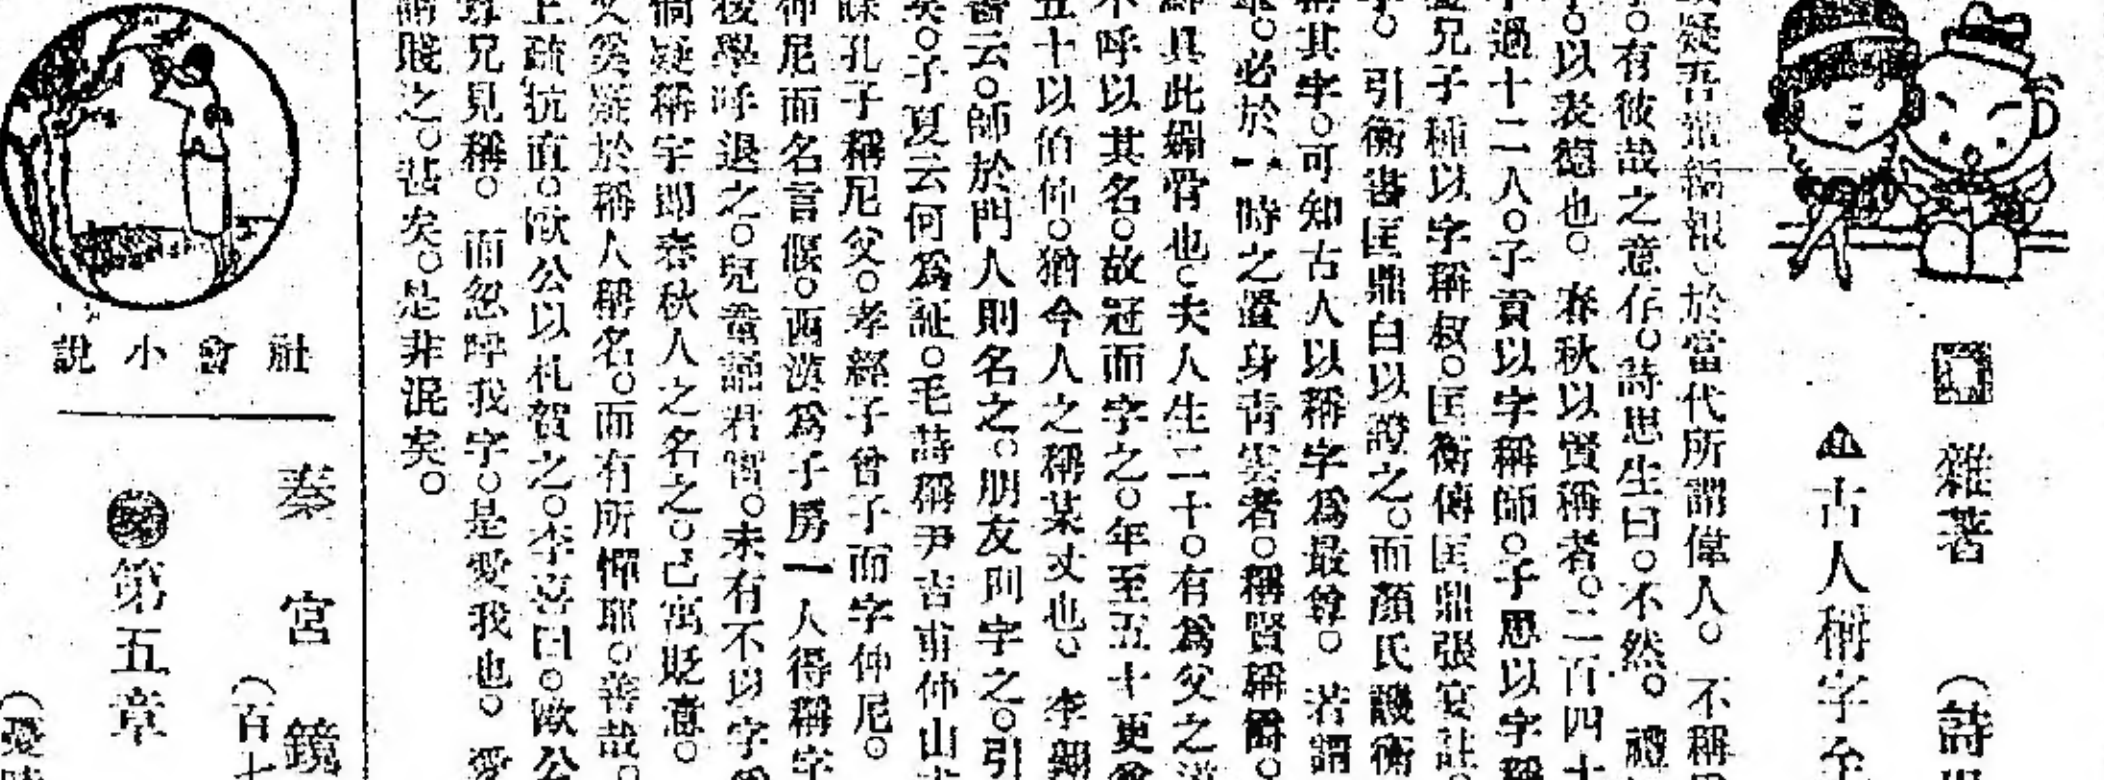 雜著 (詩
古人稱字
疑吾 稱 報、於當代所謂偉人。不稱
。有彼哉之意存。詩思生曰。不然。禮
。以表德也。春秋以賢稱者。二百四十
不過十二人。子貢以字稱師。子思以字稱
兄子種以字稱叔。匡衡傳匡鼎張宴註。
字。引衡書匡鼎白以證之。而顏氏譏衡
稱其字。可知古人以稱字爲最尊。若謂
。必於一時之置身靑雲者。稱賢稱爵。
具此媚骨也。夫人生二十。有爲父之道
不呼以其名。故冠而字之。年至五十更
五十以伯仲。猶今人之稱某丈也。李翶
書云。師於門人則名之。朋友則字之。引
矣。子夏云何爲証。毛詩稱尹吉甫仲山
孔子稱尼父。孝經子曾子而字仲尼。
仲尼而名言偃。西漢爲子房一人得稱字
後學呼退之。兒童誦君實。未有不以字
倘疑稱字即春秋人之名之。已寓貶意。
父奚疑於稱人稱名。而有所憚耶。善哉。
上疏抗直。歐公以札賀之。李 曰。歐公
尊兄見稱。而忽呼我字。是愛我也。愛
謂賤之。甚矣。是非混矣。
社會小說
秦宮鏡
(百七
第五章